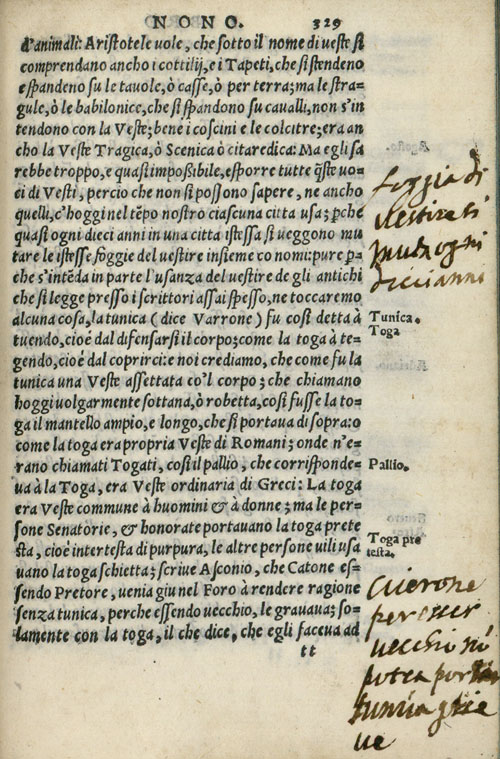 NONO. 329
d'animali: Aristotele uole, che sotto il nome di ueste si
comprendano ancho i cottilij, e i Tapeti, che si stendeno
e spandeno su le tauole, ò casse, ò per terra; ma le stra-
gule, ò le babilonice, che si spandono su caualli, non s'in
tendono con la Veste; bene i coscini e le colcitre; era an
cho la Veste Tragica, ò Scenica ò citaredica: Ma egli sa
rebbe troppo, e quasi impoßibile, esporre tutte q̃ste uo-
ci di Vesti, percio che non si possono sapere, ne ancho
quelli, c'hoggi nel tẽpo nostro ciascuna citta usa; p̱che
quasi ogni dieci anni in una citta istessa si ueggono mu
tare le istesse foggie del uestire insieme co nomi: pure p̱-
che s'intẽda in parte l'usanza del uestire de gli antichi
che si legge presso i scrittori assai spesso, ne toccaremo
alcuna cosa, la tunica (dice Varrone) fu cosi detta à
tuendo, cioè dal difensarsi il corpo; come la toga à te-
gendo, cioè dal coprirci: e noi crediamo, che come fu la
tunica una Veste assettata co'l corpo; che chiamano
hoggi uolgarmente sottana, ò robetta, cosi fusse la to-
ga il mantello ampio, e longo, che si portaua di sopra: o
come la toga era propria Veste di Romani; onde n'e-
rano chiamati Togati, cosi il pallio, che corrisponde-
ua à la Toga, era Veste ordinaria di Greci: La toga
era Veste commune à huomini & à donne; ma le per-
sone Senatorie, & honorate portauano la toga prete
sta, cioè intertesta di purpura, le altre persone uili usa
uano la toga schietta; scriue Asconio, che Catone es-
sendo Pretore, uenia giu nel Foro à rendere ragione
senza tunica, perche essendo uecchio, le grauaua; so-
lamente con la toga, il che dice, che egli faceua ad
tt
foggia di
uestire si
muta ogni
dieci anni
Tunica.
Toga
Pallio.
Toga pre
testa.
Cicerone
per esser
uecchio nõ
potea portar
tunica grie
ue